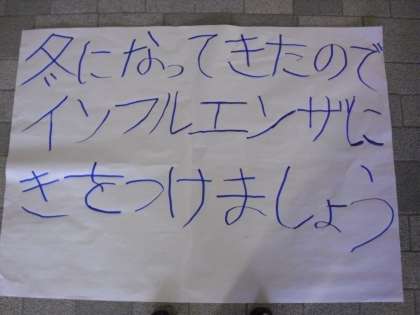 冬になってきたので
インフルエンザに
きをつけましょう